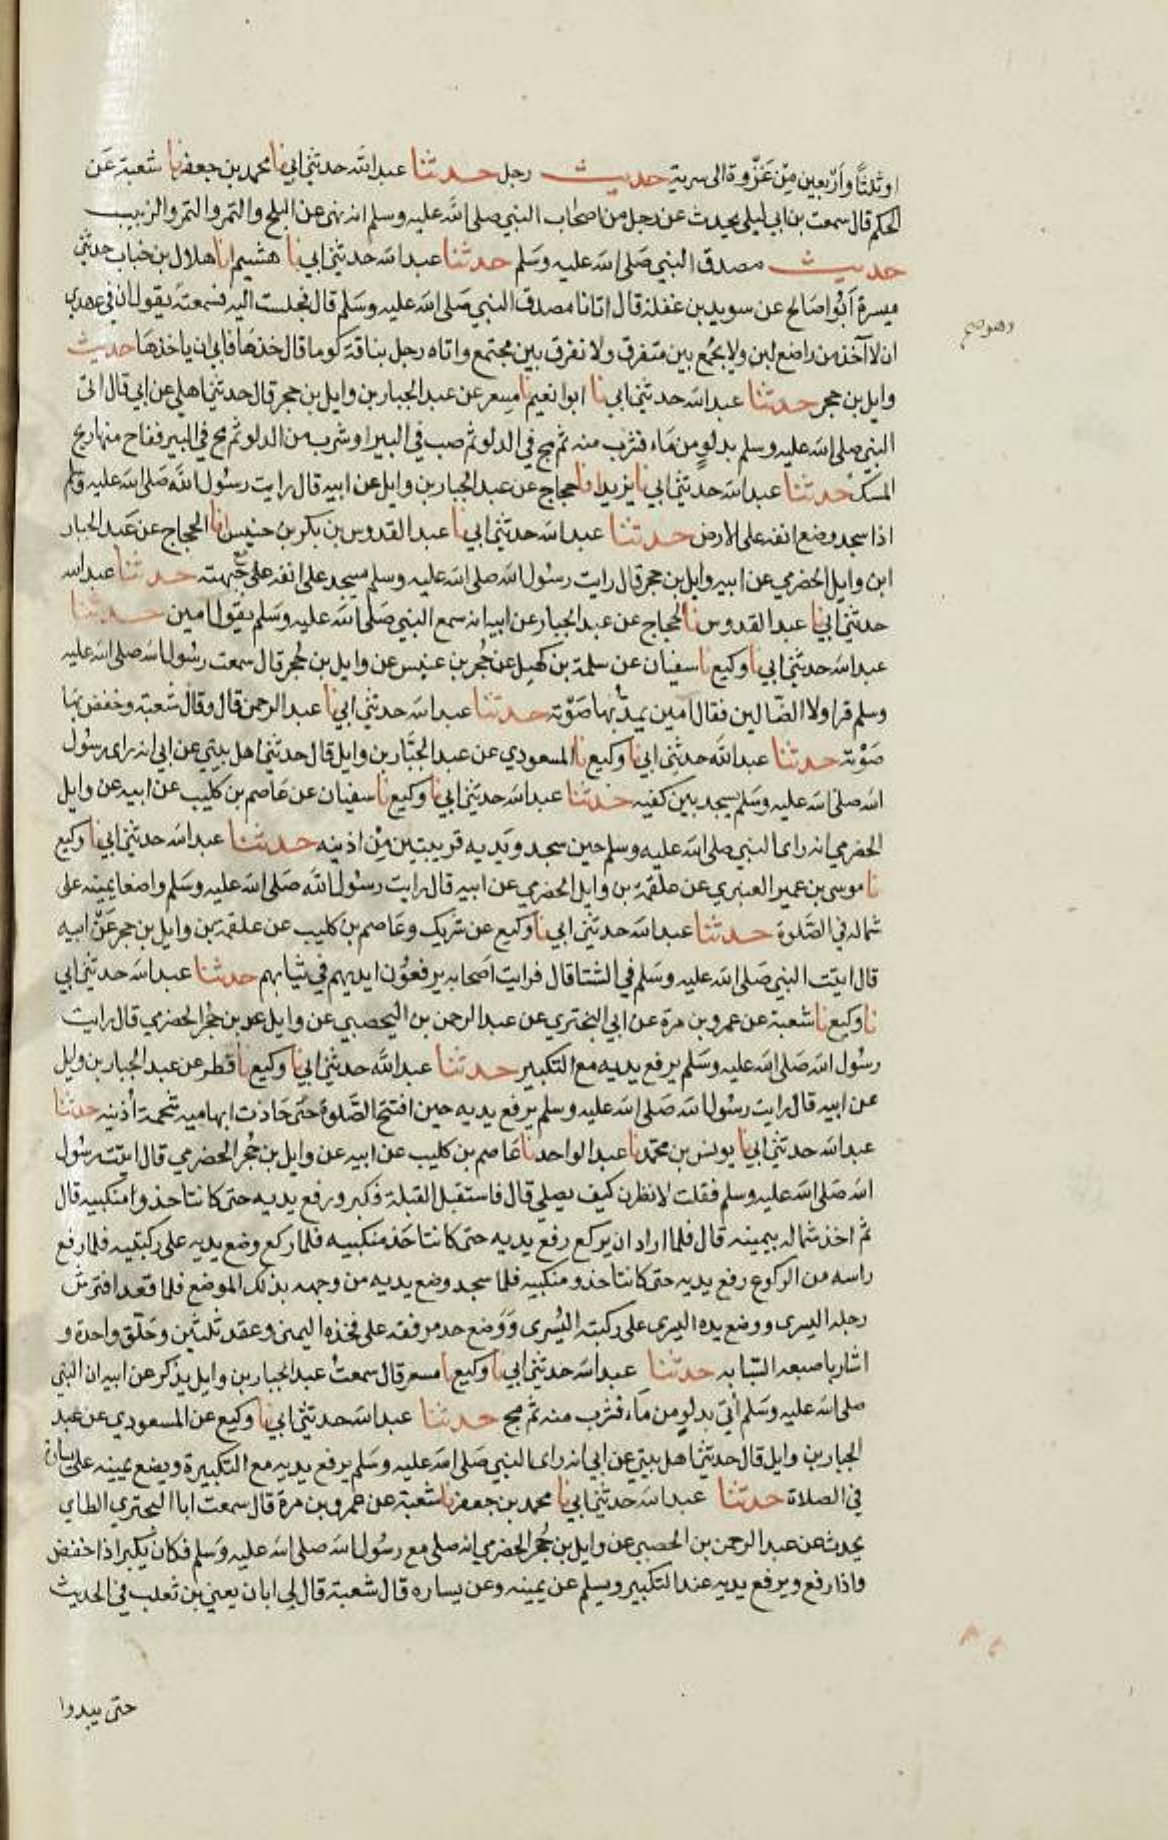 اوثلثًا واربعين من غزوة الى سرية حديث رجل حدثنا عبدالله حدثني ابي نا محمد بن جعفر نا شعبة عن
الحكم قال سمعت بن ابي ليلى يحدث عن رجل من اصحاب النبي صلى الله عليه وسلم انه نهى عن البلح والتمر والتمر والزبيب
حديث مصدق النبي صلى الله عليه وسلم حدثنا عبدالله حدثني ابي نا هشيم انا هلال بن خباب حدثني
ميسرة ابو اصالح عن سويد بن غفلة قال اتانا مصدق النبي صلى الله عليه وسلم قال فجلست اليه فسمعته يقول ان في عهدي
وهو صح
ان لا آخذ من راضع لبن ولا يجمع بين متفرق ولا نفرق بين مجتمع واتاه رجل بناقة كوما قال خذها فابى ان ياخذها حديث
وايل بن حجر حدثنا عبدالله حدثني ابي نا ابوا نعيم نا مسعر عن عبد الجبار بن وايل بن حجر قال حدثني اهلي عن ابي قال اتى
النبي صلى الله عليه وسلم بدلو من ماء فشرب منه ثم مج في الدلو ثم صب في البير او شرب من الدلو ثم مج في البير ففاح منها ريح
المسك حدثنا عبدالله حدثني ابي نا يزيد انا حجاج عن عبد الجبار بن وايل عن ابيه قال رايت رسول الله صلى الله عليه وسلم
اذا سجد وضع انفه على الارض حدثنا عبدالله حدثني ابي نا عبد القدوس بن بكر بن خنيس انا الحجاج عن عبد الجبار
ابن وايل الحضرمي عن ابيه وايل بن حجر قال رايت رسول الله صلى الله عليه وسلم يسجد على انفه على جبهته حدثنا عبدالله
حدثني ابي نا عبد القدوس نا الحجاج عن عبد الجبار عن ابيه انه سمع النبي صلى الله عليه وسلم يقول امين حدثنا
عبدالله حدثني ابي نا وكيع نا سفيان عن سلمة بن كهيل عن حجر بن عنبس عن وايل بن حجر قال سمعت رسول الله صلى الله عليه
وسلم قرا ولا الضالين فقال آمين يمد بها صوته حدثنا عبدالله حدثني ابي نا عبد الرحمن قال وقال شعبة وخفض بها
صوته حدثنا عبدالله حدثني ابي نا وكيع نا المسعودي عن عبد الجبار بن وايل قال حدثني اهل بيتي عن ابي انه راى رسول
الله صلى الله عليه وسلم يسجد بين كفيه حدثنا عبدالله حدثني ابي نا وكيع نا سفيان عن عاصم بن كليب عن ابيه عن وايل
الحضرمي انه راى النبي صلى الله عليه وسلم حين سجد ويديه قريبتين من اذنيه حدثنا عبدالله حدثني ابي نا وكيع
نا موسى بن عمير العنبري عن علقمة بن وايل الحضرمي عن ابيه قال رايت رسول الله صلى الله عليه وسلم واضعا يمينه على
شماله في الصلوة حدثنا عبدالله حدثني ابي نا وكيع عن شريك وعاصم بن كليب عن علقمة بن وايل بن حجر عن ابيه
قال اتيت النبي صلى الله عليه وسلم في الشتا قال فرايت اصحابه يرفعون ايديهم في ثيابهم حدثنا عبدالله حدثني ابي
نا وكيع نا شعبة عن عمرو بن مرة عن ابي البختري عن عبد الرحمن بن اليحصبي عن وايل بن حجر الحضرمي قال رايت
رسول الله صلى الله عليه وسلم يرفع يديه مع التكبير حدثنا عبدالله حدثني ابي نا وكيع نا فطر عن عبد الجبار بن وايل
عن ابيه قال رايت رسول الله صلى الله عليه وسلم يرفع يديه حين افتتح الصلوة حتى حاذت ابهاميه شحمة أذنيه حدثنا
عبدالله حدثني ابي نا يونس بن محمد نا عبد الواحد نا عاصم بن كليب عن ابيه عن وايل بن حجر الحضرمي قال اتيت رسول
الله صلى الله عليه وسلم فقلت لانظرن كيف يصلي قال فاستقبل القبلة فكبر ورفع يديه حتى كانتا حذوا منكبيه قال
ثم اخذ شماله بيمينه قال فلما اراد ان يركع رفع يديه حتى كانتا حذ منكبيه فلما ركع وضع يديه على ركبتيه فلما رفع
راسه من الركوع رفع يديه حتى كانتا حذو منكبيه فلما سجد وضع يديه من وجهه بذلك الموضع فلما قعد افترش
رجله اليسرى ووضع يده اليسرى على ركبته اليسرى ووضع حد مرفقه على فخذه اليمنى وعقد ثلثين وحلق واحدة و
اشار باصبعه السبابه حدثنا عبدالله حدثني ابي نا وكيع نا مسعر قال سمعت عبد الجبار بن وايل يذكر عن ابيه ان النبي
صلى الله عليه وسلم أتي بدلو من ماء فشرب منه ثم مج حدثنا عبدالله حدثني ابي نا وكيع عن المسعودي عن عبد
الجبار بن وايل قال حدثنا اهل بيتي عن ابي انه راى النبي صلى الله عليه وسلم يرفع يديه مع التكبيرة ويضع يمينه على يساره
في الصلاة حدثنا عبدالله حدثني ابي نا محمد بن جعفر نا شعبة عن عمرو بن مرة قال سمعت ابا البختري الطاي
يحدث عن عبد الرحمن بن الحصبي عن وايل بن حجر الحضرمي انه صلى مع رسول الله صلى الله عليه وسلم فكان يكبر اذا خفض
واذا رفع ويرفع يديه عند التكبير ويسلم عن يمينه وعن يساره قال شعبة قال لي ابان يعني بن تغلب في الحديث
حتى يبدوا